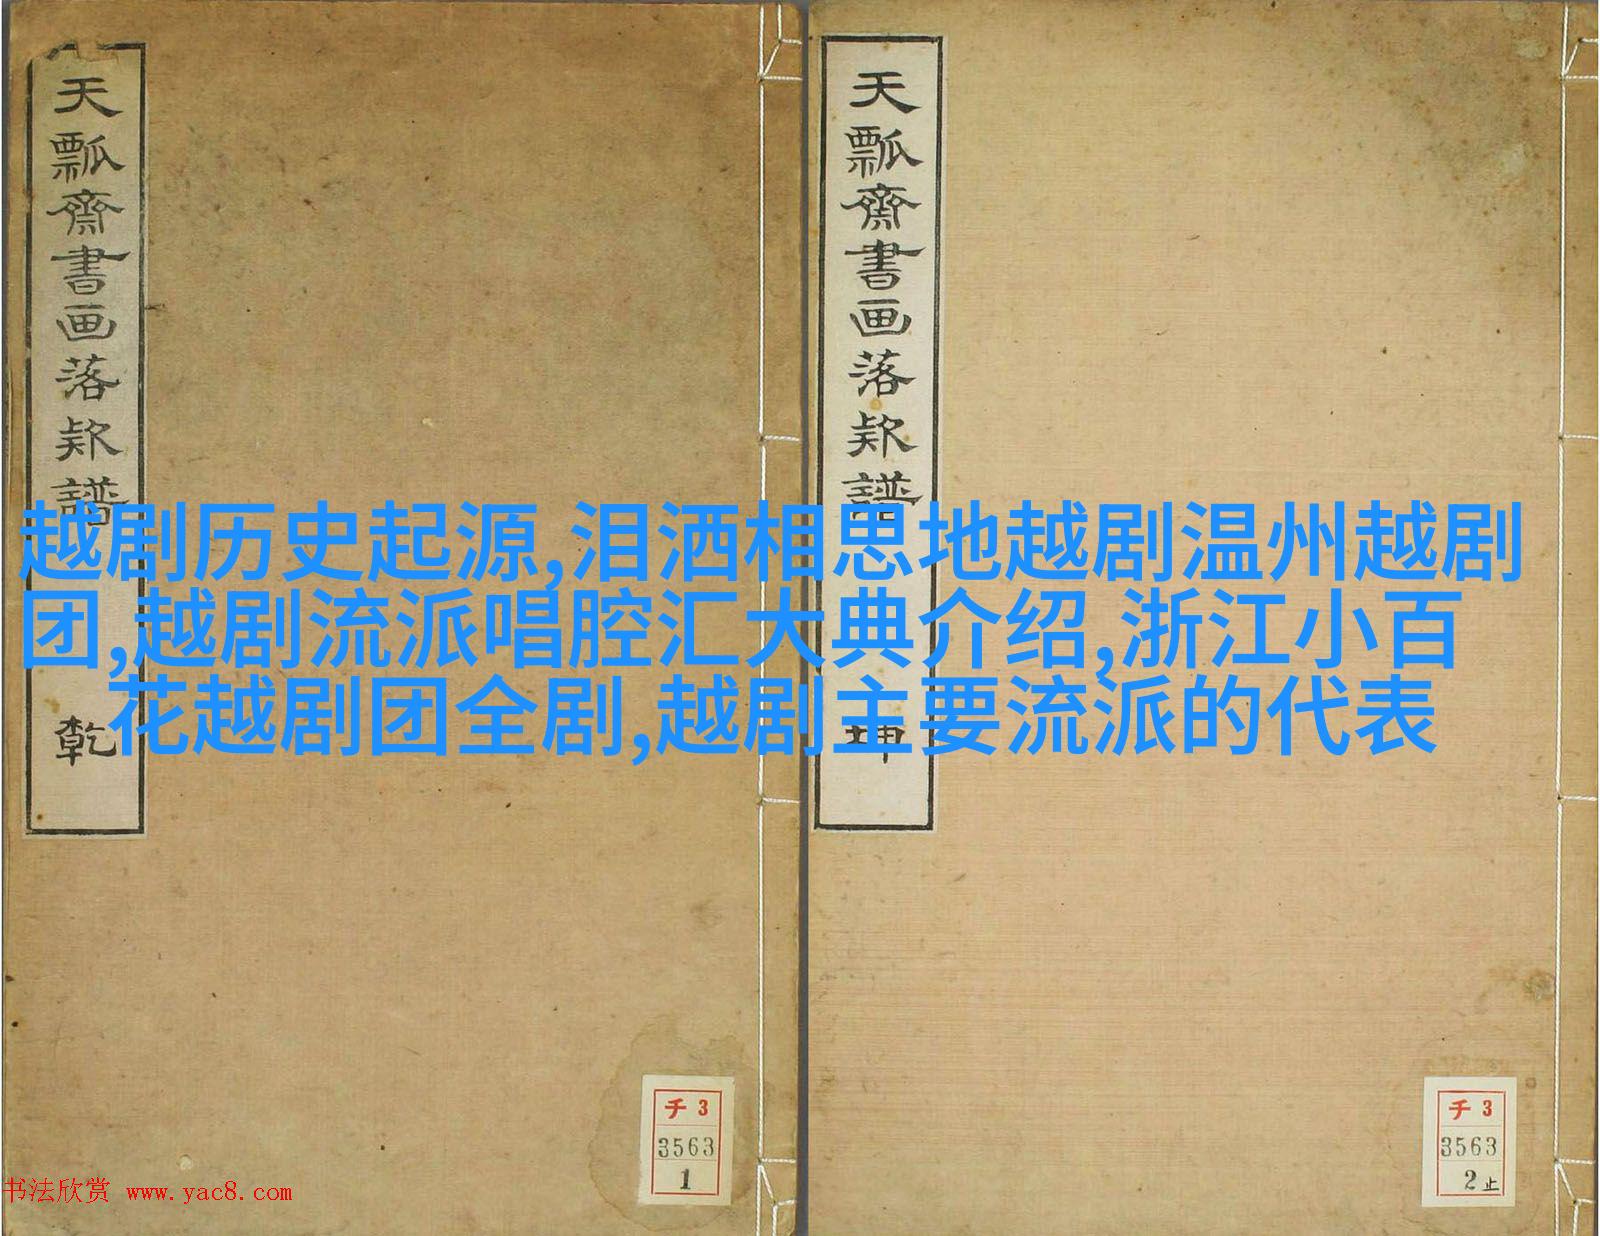 天瓢齋書画落欵譜
乾
天瓢齋書画落欵譜
坤
越剧历史起源,泪洒相思地越剧温州越剧
团,越剧流派唱腔汇大典介绍,浙江小百
花越剧团全剧,越剧主要流派的代表
チ 3
3563
1
チ 3
3563
2止
书法欣赏 www.yac8.com